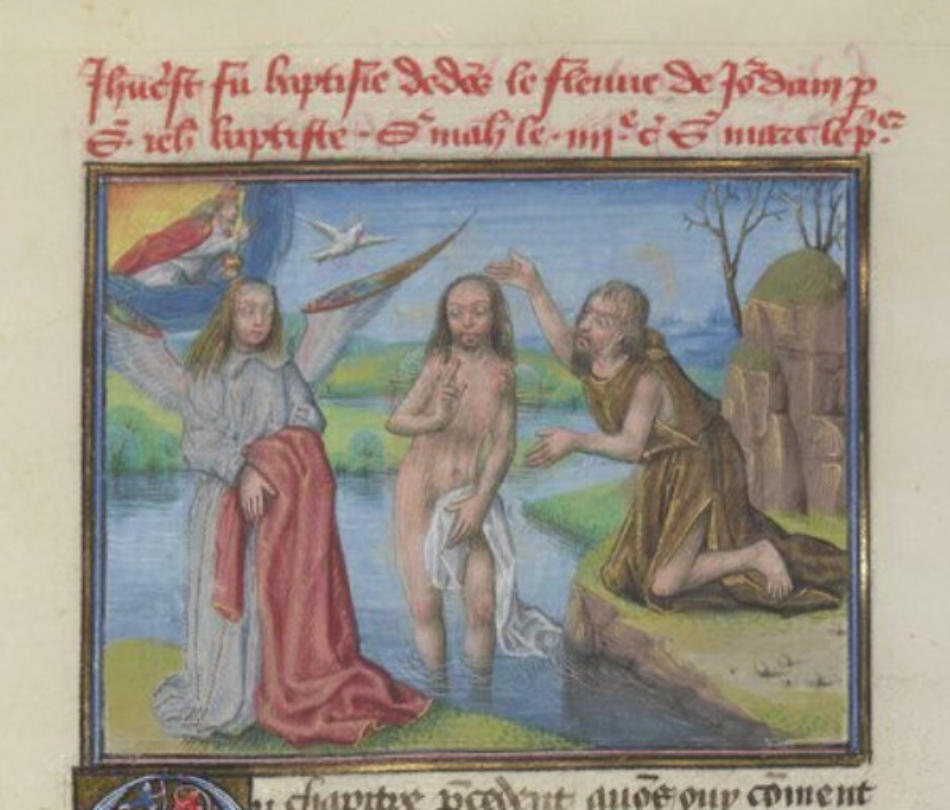 Jhūcst fu baptisie dedēs le fleuue de Jordain p
S. ieh baptiste - S mah le . iiiiᵉ c̄ S marc le pᵉʳ
u chapitre p̄cedent auōs ouy cōment